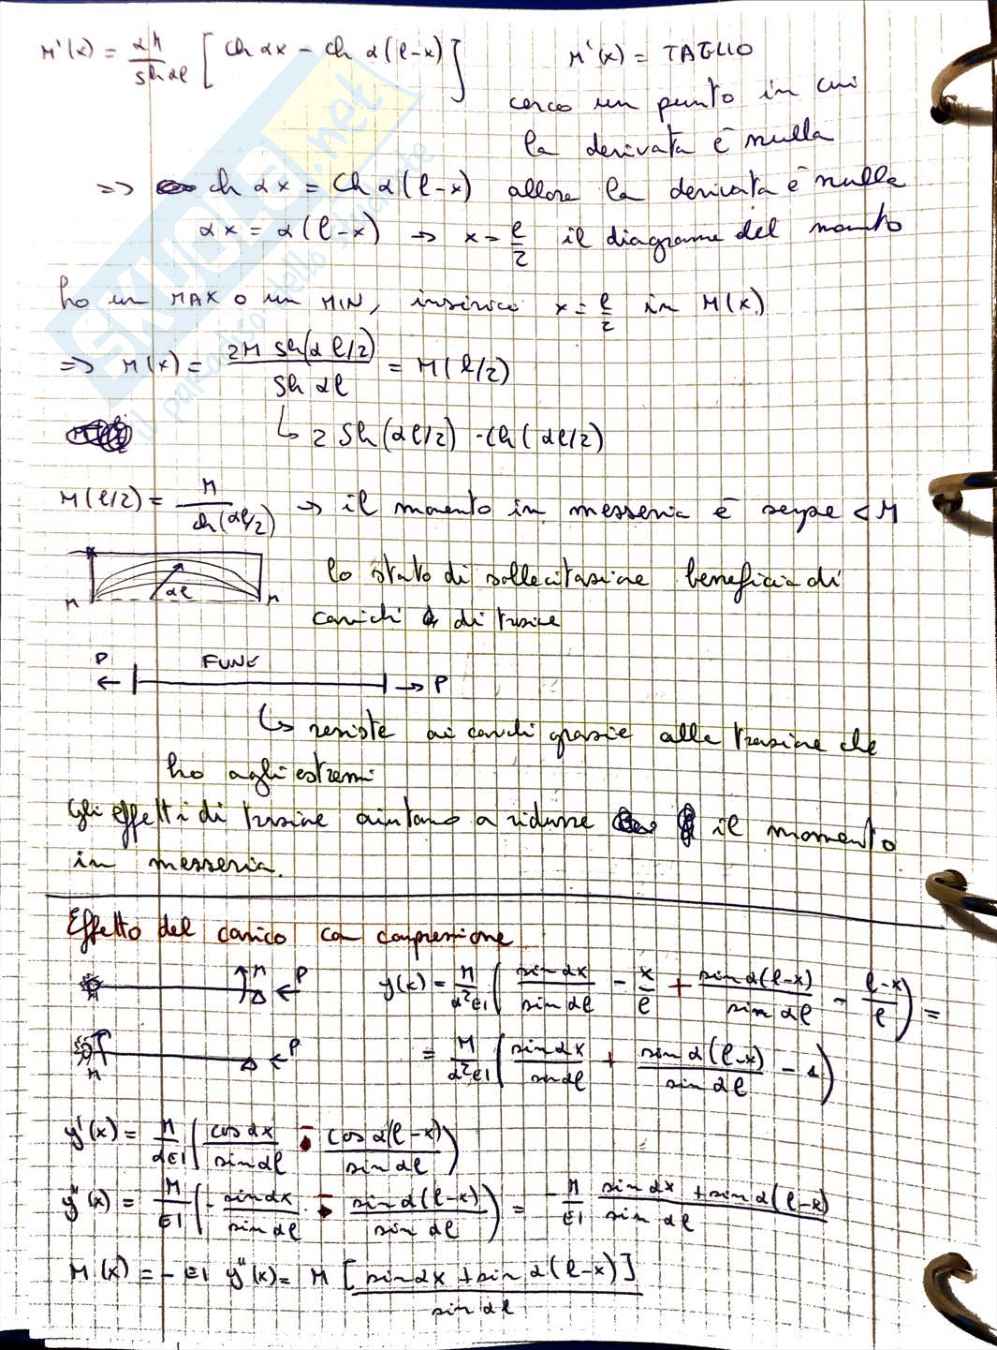 M'(x) = αM/sh αl [ch αx - ch α(l-x)] M'(x) = TAGLIO
cerco un punto in cui
la derivata è nulla
=> ch αx = ch α(l-x) allora la derivata è nulla
αx = α(l-x) → x = l/2 il diagramma del momento
ho un MAX o un MIN, inserisco x = l/2 in M(x)
=> M(x) = 2M sh(αl/2)/sh αl = M(l/2)
↳ 2 sh(αl/2) · ch(αl/2)
M(l/2) = M/ch(αl/2) → il momento in mezzeria è sempre < M
M αl M
lo stato di sollecitazione beneficia di
carichi di trazione
P ← FUNE → P
↳ resiste ai carichi grazie alla trazione che
ho agli estremi
Gli effetti di trazione aiutano a ridurre il momento
in mezzeria.
Effetto del carico con compressione
M P y(x) = M/α²EI (sin αx/sin αl - x/l + sin α(l-x)/sin αl - l-x/l) =
M P = M/α²EI (sin αx/sin αl + sin α(l-x)/sin αl - 1)
y'(x) = M/αEI (cos αx/sin αl - cos α(l-x)/sin αl)
y''(x) = M/EI (- sin αx/sin αl - sin α(l-x)/sin αl) = - M/EI sin αx + sin α(l-x)/sin αl
M(x) = - EI y''(x) = M [sin αx + sin α(l-x)]/sin αl
SKUOLA.net
il paradiso dello studente